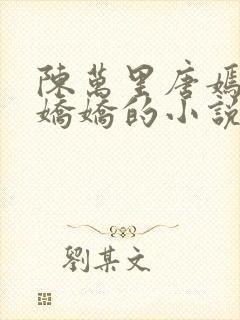 陳萬里唐嫣
嬌嬌的小說
劉某文